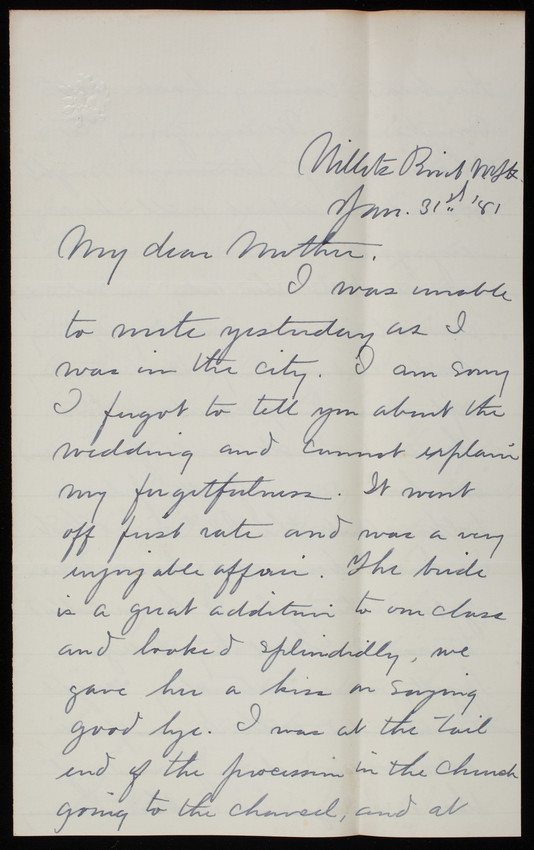 Willets Point NYH.
Jan. 31st '81
My dear Mother.
I was unable
to write yesterday as I
was in the city. I am sorry
I forgot to tell you about the
wedding and cannot explain
my forgetfulness. It went
off first rate and was a very
enjoyable affair. The bride
is a great addition to our class
and looked splendidly, we
gave her a kiss on saying
good bye. I was at the tail
end of the procession in the church
going to the chancel, and at